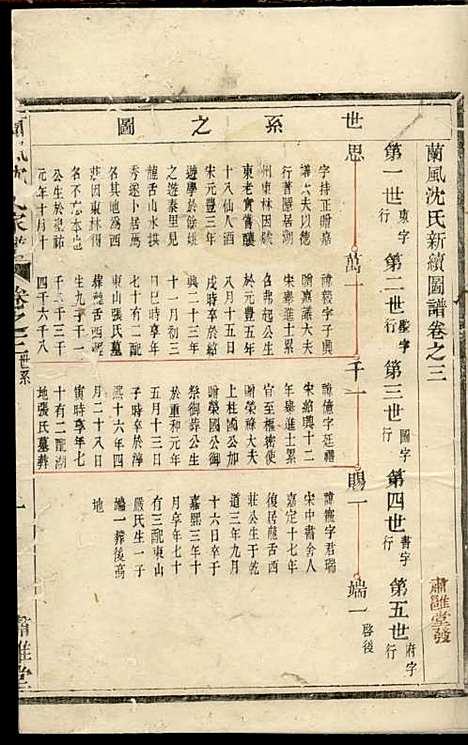 蘭風沈氏新續圖譜卷之三
肅雝堂發
第一世東字行
第二世壁字行
第三世圖字行
第四世書字行
第五世府字行
世系之圖
思
萬十
千一
賜一
端一啓後
字持正贈嘉
議大夫以德
行著隱居湖
州東林因號
東老實嘗釀
十八仙人酒
宋元豐三年
學於餘姚
之遊秦里見
龍舌山水拱
秀遂卜居焉
其地為西
莊因東林得
名不忘本也
公生於聖祐
元年十月十
諱毅字子興
贈嘉議大夫
宋舉進士累
名弗起公生
於元豐五年
八月十五日
戌時卒於紹
興二十三年
十一月初三
日巳時享年
七十有二配
東山張氏墓
葬龍舌西
生九子十一
千二千三千
四千六千八
諱億字廷禮
宋紹興十二
年舉進士累
官至樞密使
贈榮祿大夫
上柱國公加
贈榮國公御
祭御葬公生
於重和元年
五月十三日
子時卒於淳
熙十六年四
月二十八日
寅時享年七
十有二配湖
地張氏墓葬
諱 字君瑞
宋中書舍人
嘉定十七年
復居龍舌西
莊公生於乾
道三年九月
十六日卒于
嘉熙三年十
月享年七十
有三配東山
嚴氏生一子
端一葬後高
地
卷之三
世系
一
肅雝堂